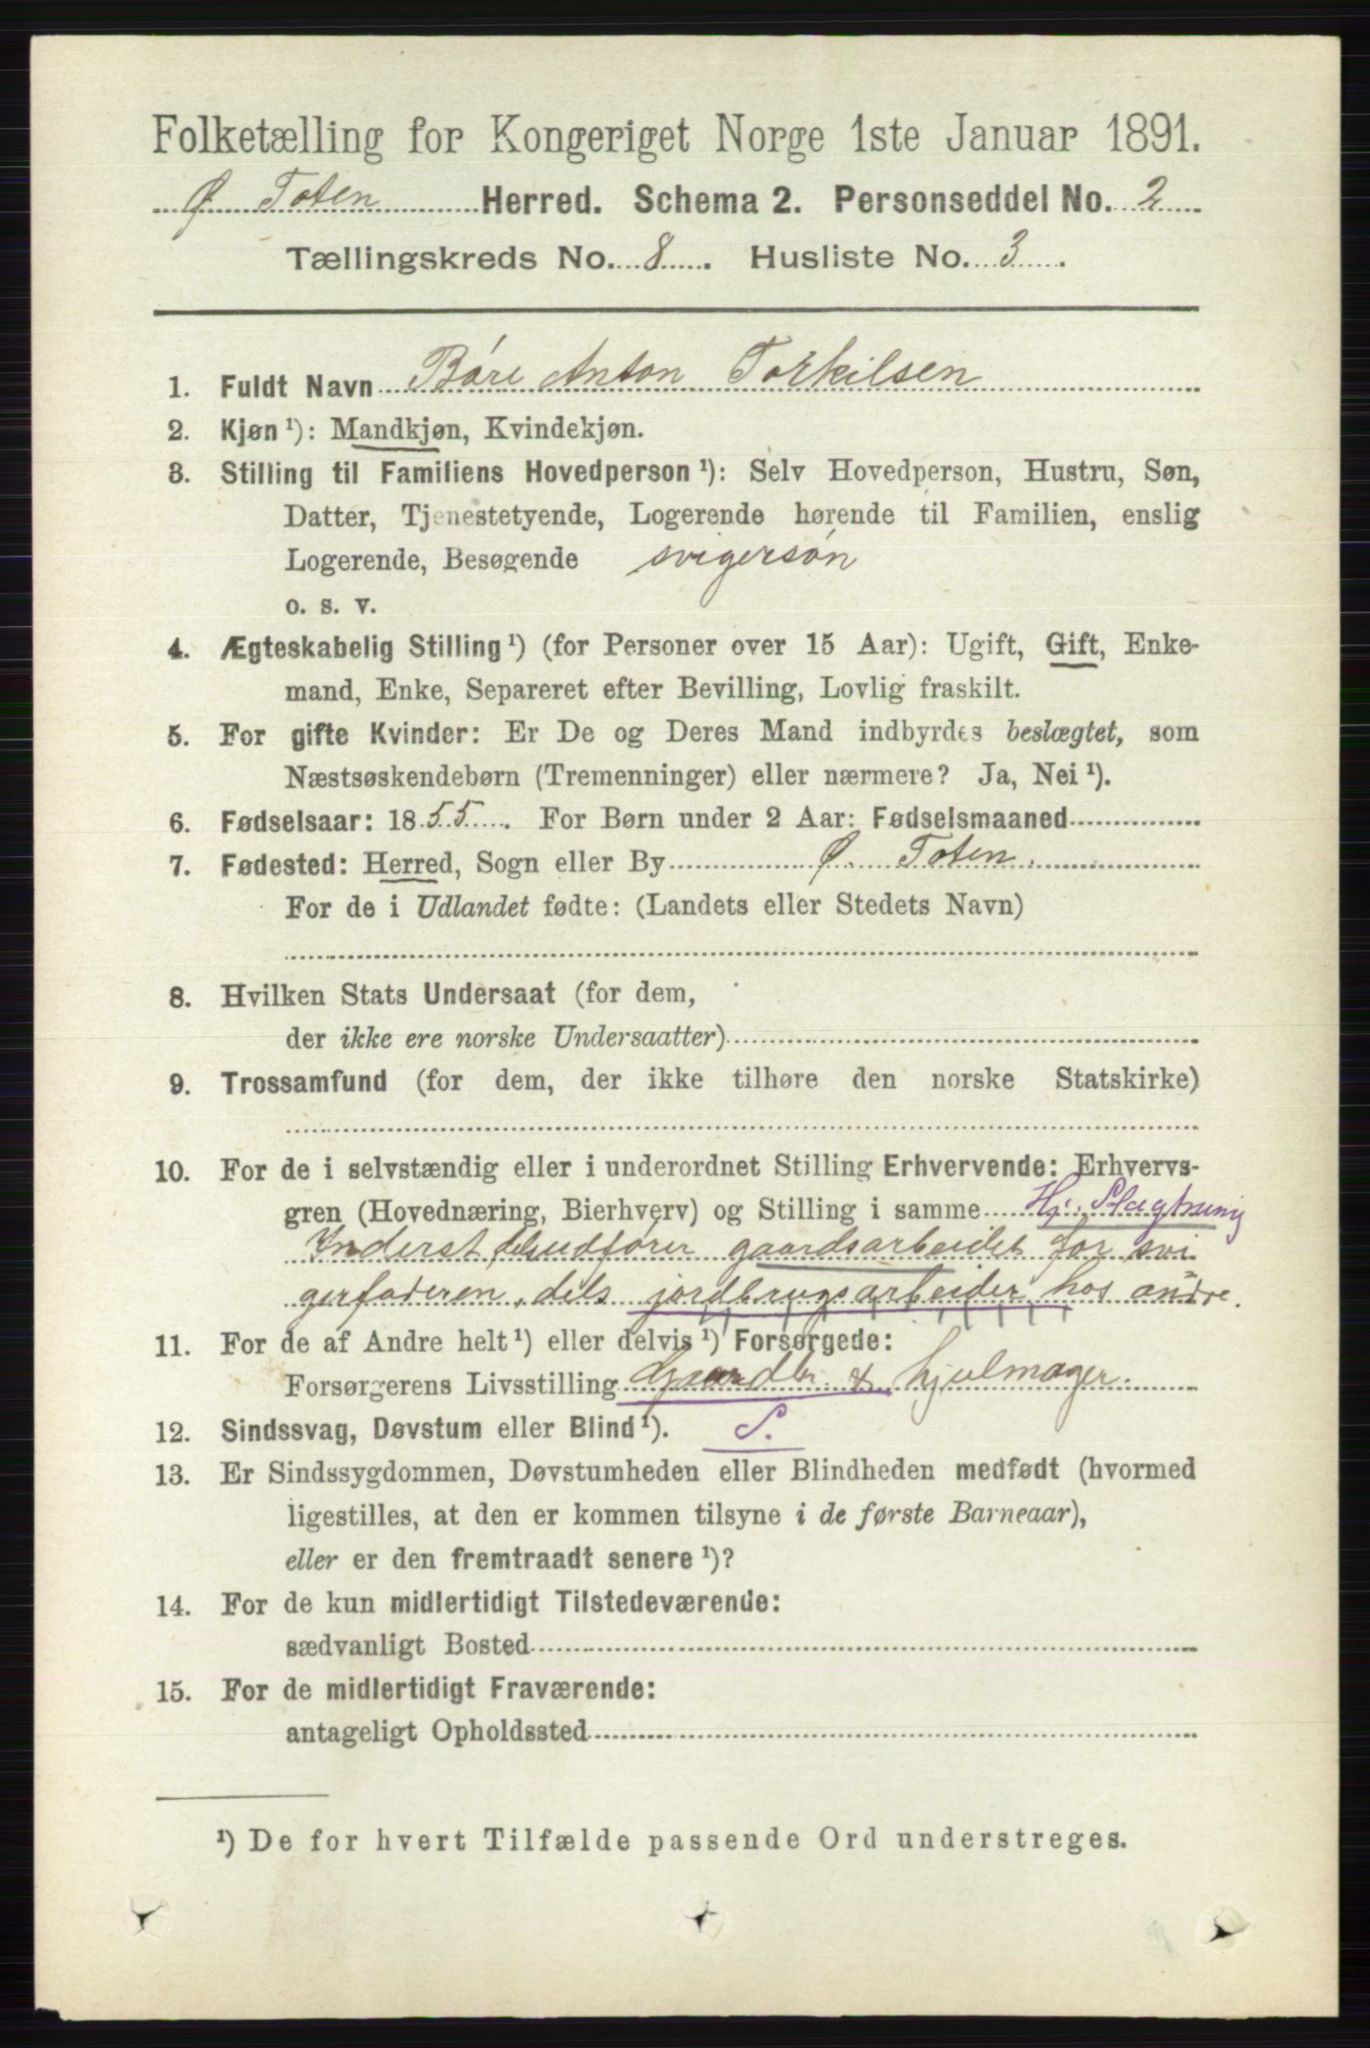 Folketælling for Kongeriget Norge 1ste Januar 1891.
Ø. Toten Herred. Schema 2. Personseddel No. 2
Tællingskreds No. 8. Husliste No. 3.
1. Fuldt Navn Båre Anton Torkilsen
2. Kjøn ¹): Mandkjøn, Kvindekjøn.
3. Stilling til Familiens Hovedperson ¹): Selv Hovedperson, Hustru, Søn,
Datter, Tjenestetyende, Logerende hørende til Familien, enslig
Logerende, Besøgende svigersøn
o. s. v.
4. Ægteskabelig Stilling ¹) (for Personer over 15 Aar): Ugift, Gift, Enke-
mand, Enke, Separeret efter Bevilling, Lovlig fraskilt.
5. For gifte Kvinder: Er De og Deres Mand indbyrdes beslægtet, som
Næstsøskendebørn (Tremenninger) eller nærmere? Ja, Nei ¹).
6. Fødselsaar: 1855. For Børn under 2 Aar: Fødselsmaaned
7. Fødested: Herred, Sogn eller By Ø. Toten.
For de i Udlandet fødte: (Landets eller Stedets Navn)
8. Hvilken Stats Undersaat (for dem,
der ikke ere norske Undersaatter)
9. Trossamfund (for dem, der ikke tilhøre den norske Statskirke)
10. For de i selvstændig eller i underordnet Stilling Erhvervende: Erhvervs-
gren (Hovednæring, Bierhverv) og Stilling i samme Hj. Slagtning
Inderst dels udfører gaardsarbeidet for svi
gerfaderen, dels jordbrugsarbeider hos andre.
11. For de af Andre helt ¹) eller delvis ¹) Forsørgede:
Forsørgerens Livsstilling Gaardbr. & hjulmager.
12. Sindssvag, Døvstum eller Blind ¹). S.
13. Er Sindssygdommen, Døvstumheden eller Blindheden medfødt (hvormed
ligestilles, at den er kommen tilsyne i de første Barneaar),
eller er den fremtraadt senere ¹)?
14. For de kun midlertidigt Tilstedeværende:
sædvanligt Bosted
15. For de midlertidigt Fraværende:
antageligt Opholdssted
¹) De for hvert Tilfælde passende Ord understreges.